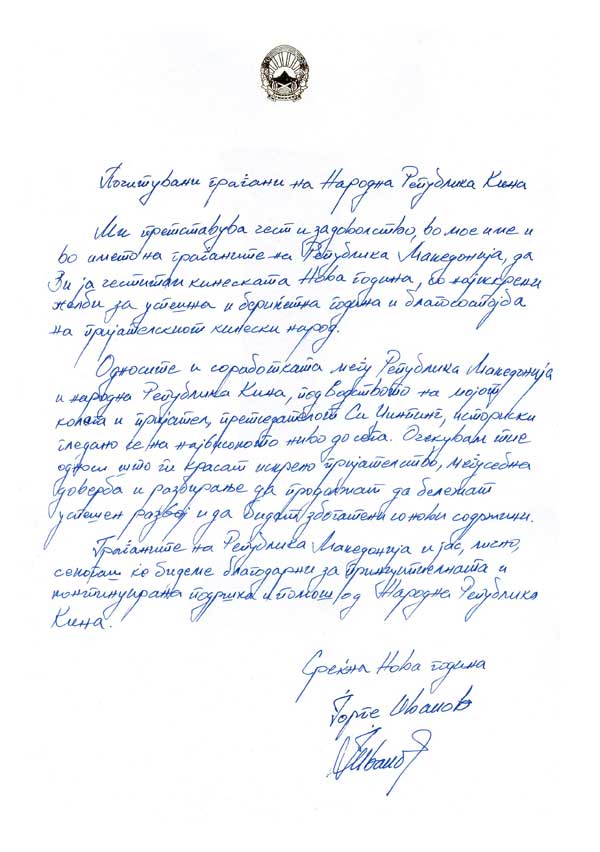 Почитувани граѓани на Народна Република Кина
Ми претставува чест и задоволство, во мое име и
во името на граѓаните на Република Македонија, да
Ви ја честитам кинеската Нова година, со најискрени
желби за успешна и берќетна година и благосостојба
на пријателскиот кинески народ.
Односите и соработката меѓу Република Македонија
и Народна Република Кина, под водството на мојот
колега и пријател, претседателот Си Џинпинг, историски
гледано се на највисокото ниво до сега. Очекувам тие
односи што ги красат искрено пријателство, меѓусебна
доверба и разбирање да продолжат да бележат
успешен развој и да бидат збогатени со нови содржини.
Граѓаните на Република Македонија и јас, лично,
секогаш ќе бидеме благодарни за принципиелната и
континуирана подршка и помош од Народна Република
Кина.
Среќна Нова година
Ѓорге Иванов
Ѓ. Иванов